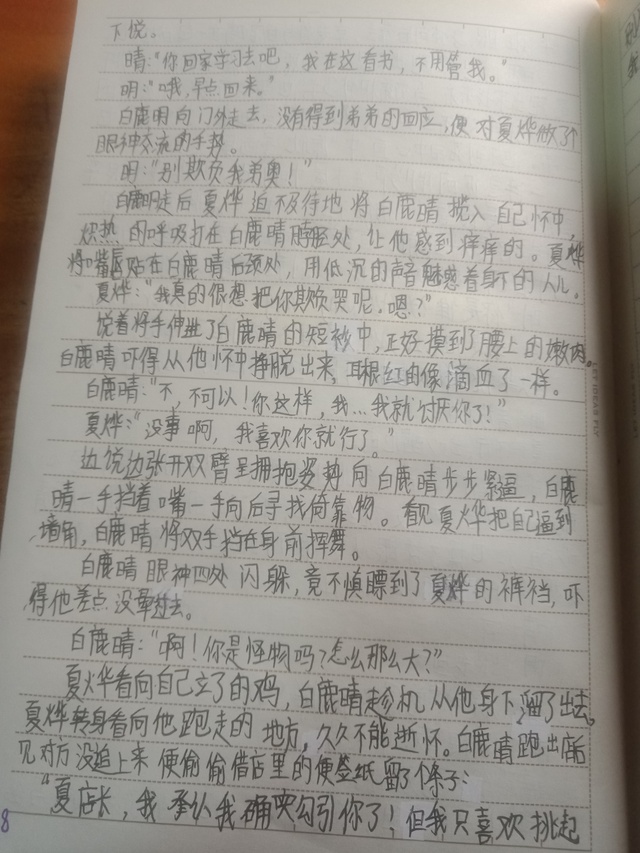 下说。
晴:“你回家学习去吧，我在这看书，不用管我。”
明:“哦,早点回来。”
白鹿明向门外走去，没有得到弟弟的回应,便对夏烨做了个
眼神交流的手势。
明:“别欺负我弟奥！”
白鹿明走后 夏烨 迫不及待地 将白鹿晴 揽入 自己怀中,
炽热 的呼吸打在 白鹿晴脖颈处，让他感到痒痒的。夏烨
将嘴唇贴在白鹿晴后颈处，用低沉的声音魅惑着身下的人儿。
夏烨:“我真的很想把你欺负哭呢，嗯?”
说着将手伸进了白鹿晴的短衫中，正好摸到了腰上的嫩肉。
白鹿晴吓得从他怀中挣脱出来，耳根红的像滴血了一样。
白鹿晴:“不，不可以！你这样，我…我就讨厌你了！”
夏烨:“没事啊，我喜欢你就行了。”
边说边张开双臂呈拥抱姿势向白鹿晴步步紧逼，白鹿
晴一手挡着嘴一手向后寻找倚靠物。看见夏烨把自己逼到
墙角，白鹿晴将双手挡在身前挥舞。
白鹿晴 眼神四处闪躲，竟不慎瞟到了夏烨的裤裆，吓
得他差点没晕过去。
白鹿晴:“啊！你是怪物吗?怎么那么大?”
夏烨看向自己立了的鸡，白鹿晴趁机从他身下溜了出去。
夏烨转身看向他跑走的地方，久久不能逝怀。白鹿晴跑出店后
见对方没追上来 便偷偷借店里的便签纸留了个条子:
“夏店长，我承认我确实勾引你了！但我只喜欢挑起
8